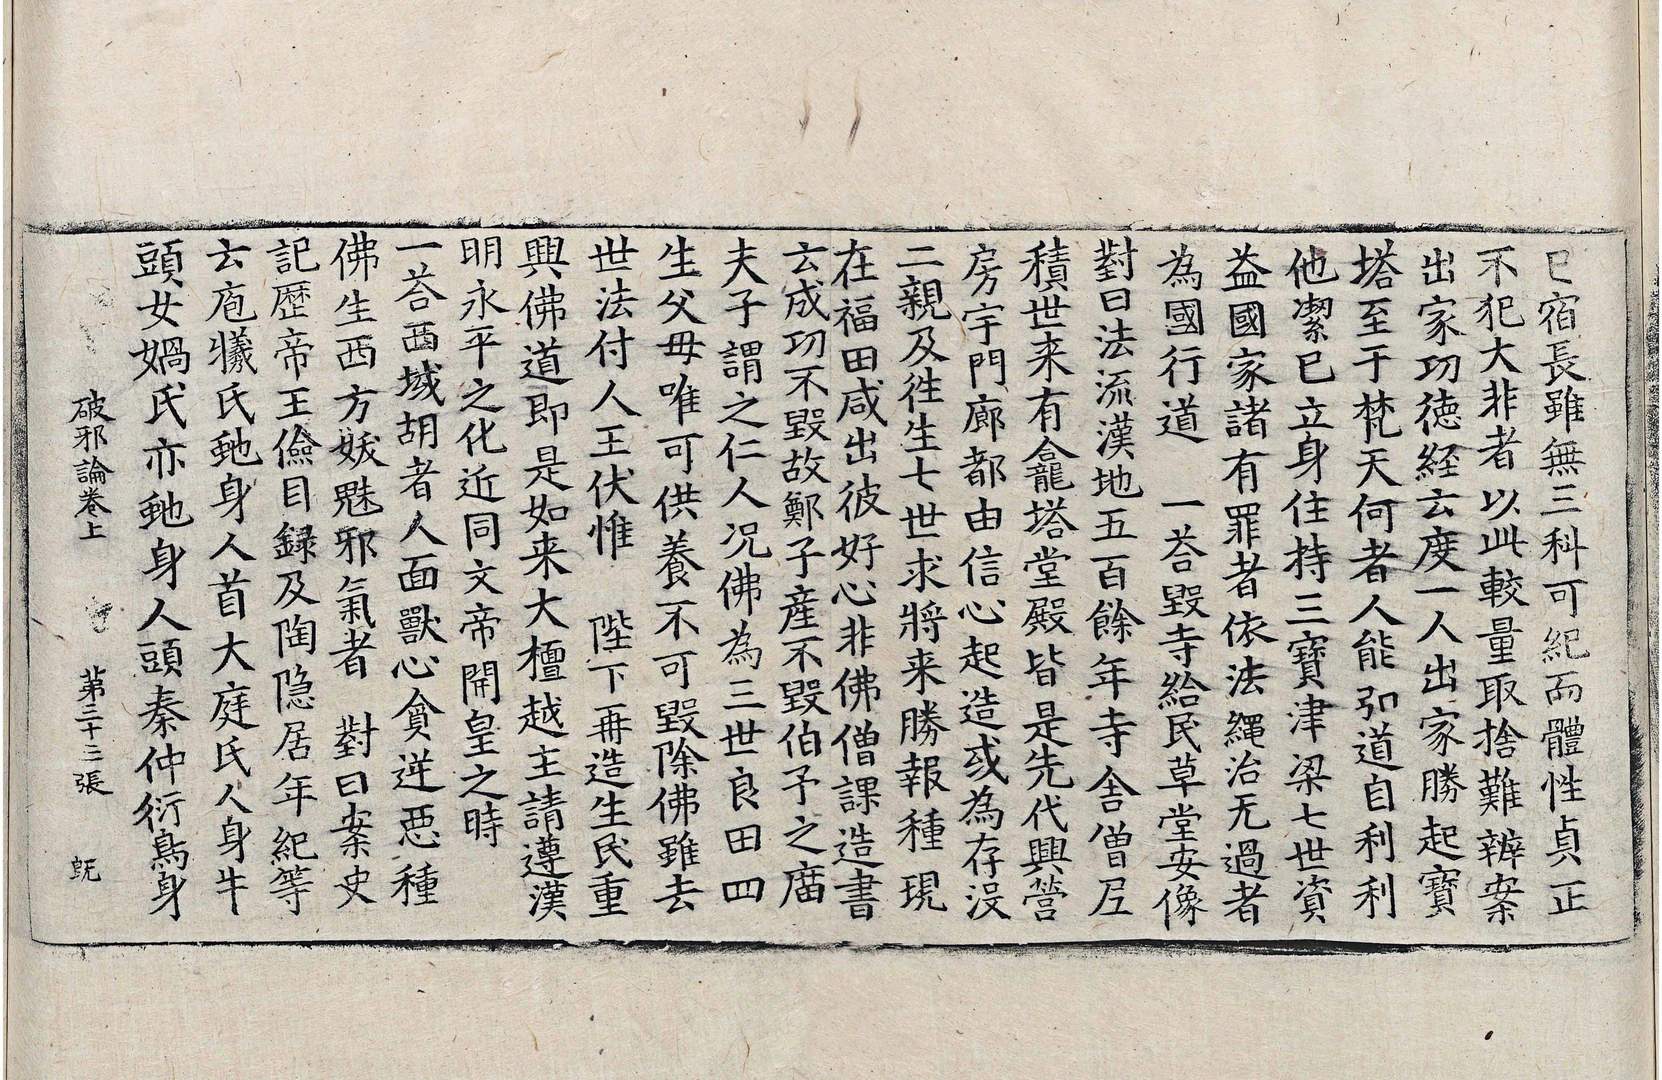 已宿長雖無三科可紀而體性貞正
不犯大非者以此較量取捨難辨案
出家功德經云度一人出家勝起寶
塔至于梵天何者人能弘道自利利
他潔已立身住持三寶津梁七世資
益國家諸有罪者依法繩治无過者
為國行道　一荅毀寺給民草堂安像
對曰法流漢地五百餘年寺舍僧尼
積世来有龕塔堂殿皆是先代興營
房宇門廊都由信心起造或為存没
二親及徃生七世求將来勝報種現
在福田咸出彼好心非佛僧課造書
云成功不毀故鄭子產不毀伯予之廟
夫子謂之仁人况佛為三世良田四
生父母唯可供養不可毀除佛雖去
世法付人王伏惟　陛下再造生民重
興佛道即是如来大檀越主請遵漢
明永平之化近同文帝開皇之時
一荅西域胡者人面獸心貪逆惡種
佛生西方妖魅邪氣者　對曰案史
記歷帝王儉目録及陶隠居年紀等
云庖犧氏虵身人首大庭氏人身牛
頭女媧氏亦虵身人頭秦仲衍鳥身
破邪論卷上　第二十三張　旣